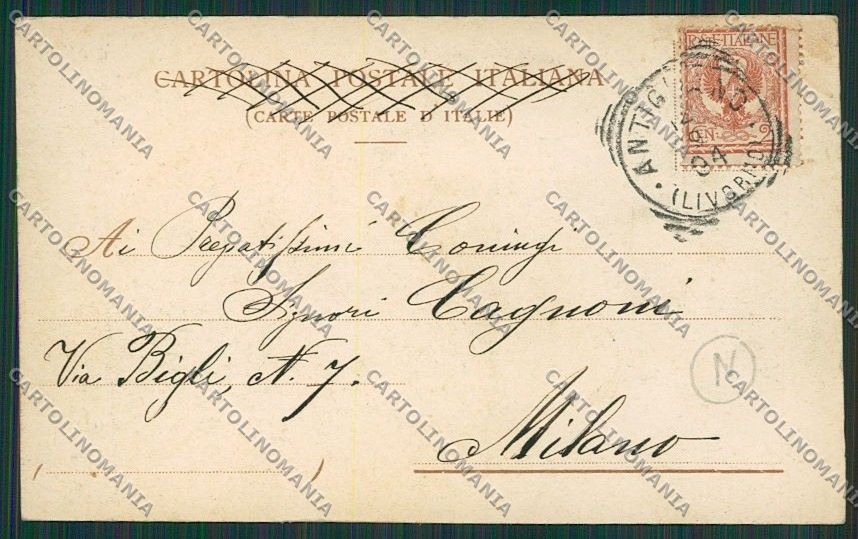 CARTOLINA POSTALE ITALIANA
(CARTE POSTALE D'ITALIE)
POSTE ITALIANE
CEN. 2
ANTIGNANO
(LIVORNO)
04
Ai Pregatissimi Coniugi
Signori Cagnoni
Via Bigli, N. 7.
Milano
N
CARTOLINOMANIA